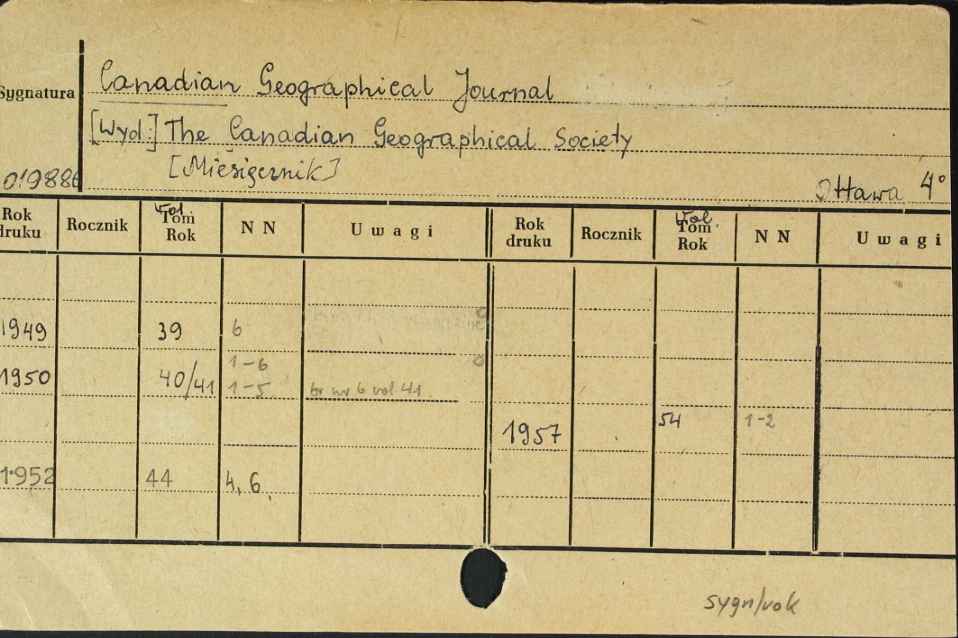 Canadian Geographical Journal
Sygnatura
[Wyd:] The Canadian Geographical Society
[Miesięcznik]
Ottawa 4°
Rok druku Rocznik Vol. Tom Rok N N Uwagi Rok druku Rocznik Vol. Tom Rok N N Uwagi
1949 39 6
1950 40/41 1-6
1-5 br nr 6 vol 41
1957 54 1-2
1952 44 4, 6,
sygn/rok